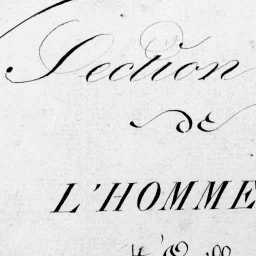 Section
de
L'HOMME